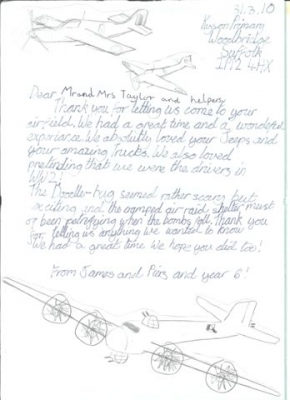 31.3.10
Woodbridge
Suffolk
IP12 4HX
Dear Mr and Mrs Taylor and helpers,
Thank you for letting us come to your
airfield. We had a great time and a wonderful
experience. We absolutly loved your Jeeps and
your amazing Trucks. We also loved
pretending that we were the drivers in
WW2!
The Doodle-bug seemed rather scary but
exciting and the cramped air raid shelter must
of been petrefying when the bombs fell. Thank you
for telling us anything we wanted to know
We had a great time We hope you did too!
From James and Piers and year 6!